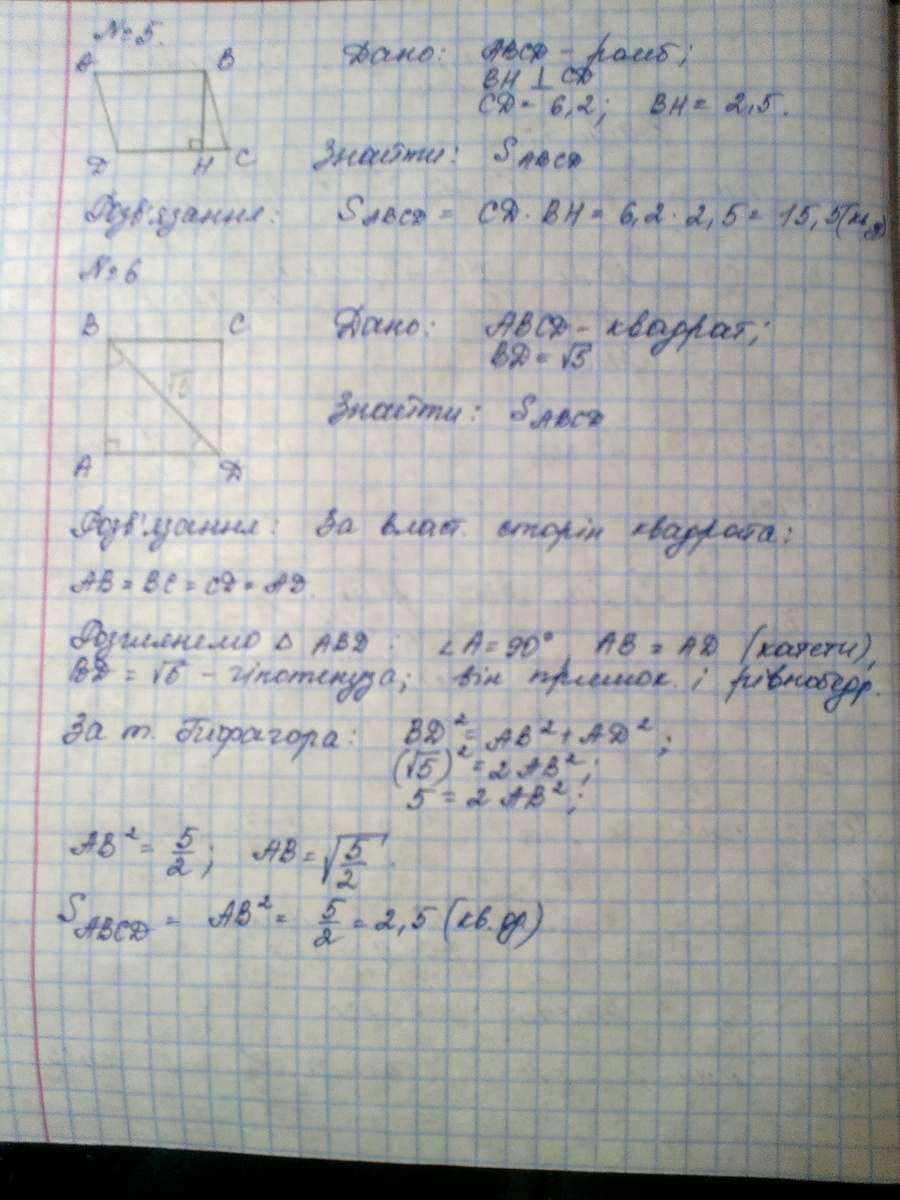 № 5.
A B Дано: ABCD - ромб;
BH ⊥ CD
CD = 6,2; BH = 2,5.
D H C Знайти: S ABCD
Розв'язання: S ABCD = CD · BH = 6,2 · 2,5 = 15,5
№ 6
B C Дано: ABCD - квадрат;
BD = √5
√5
Знайти: S ABCD
A D
Розв'язання: За власт. сторін квадрата:
AB = BC = CD = AD.
Розглянемо Δ ABD: ∠A = 90°, AB = AD (катети),
BD = √5 - гіпотенуза; він прямок. і рівнобедр.
За т. Піфагора: BD² = AB² + AD²;
(√5)² = 2 AB²;
5 = 2 AB²;
AB² = 5/2; AB = √5/2.
S ABCD = AB² = 5/2 = 2,5 (кв. од)